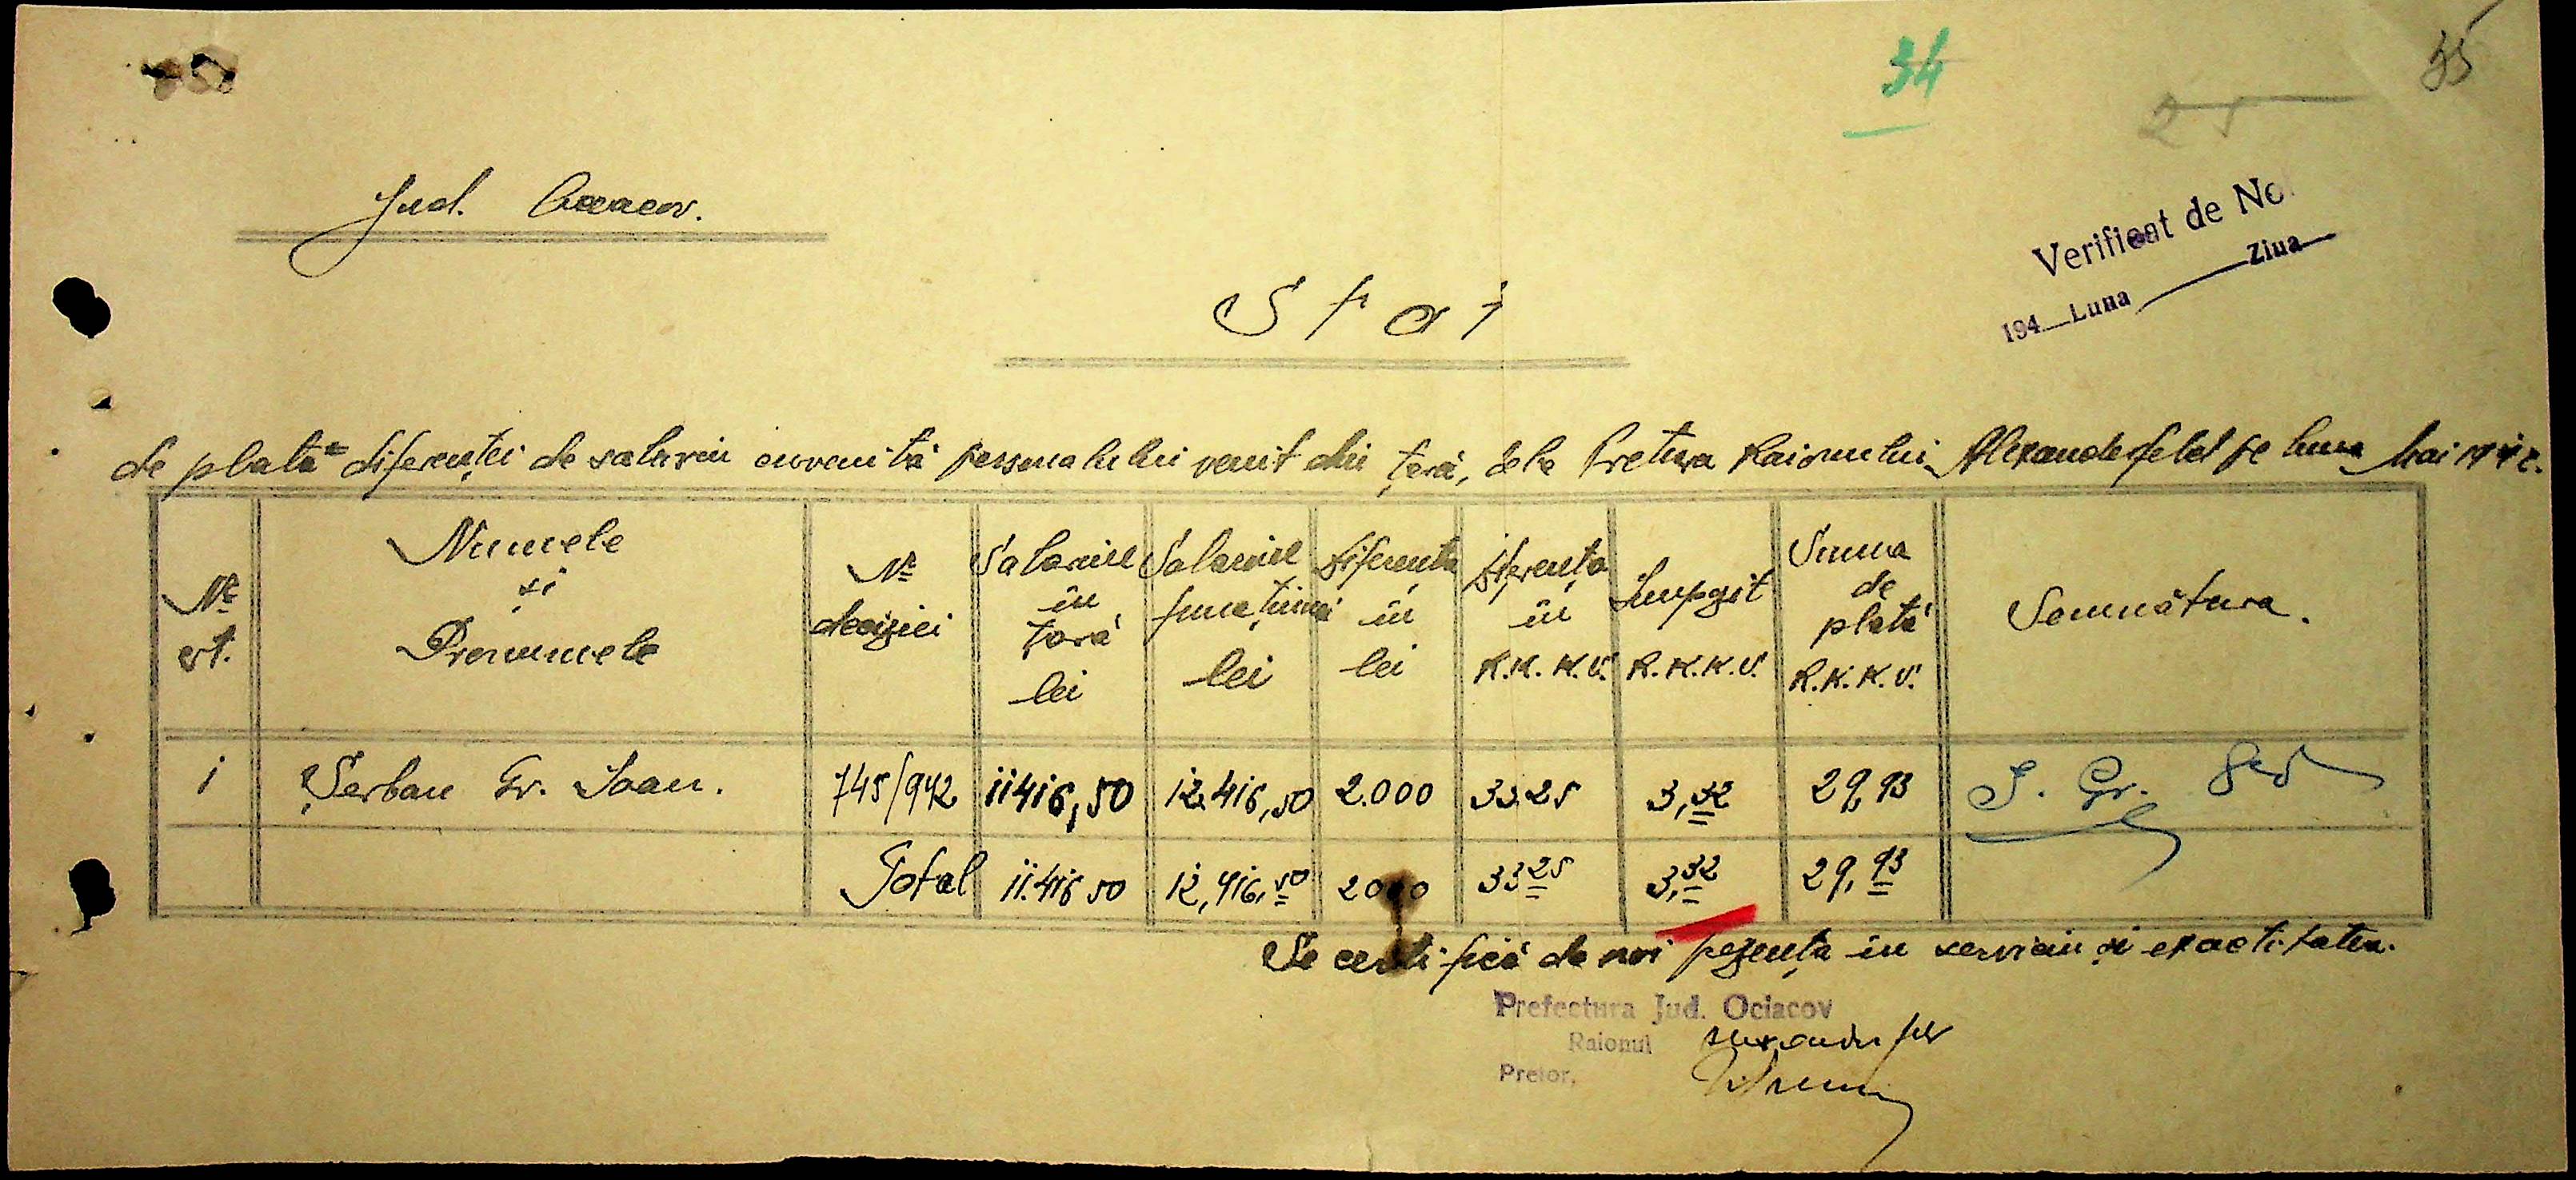 34
55
25
Jud. Oceacov.
Verificat de No
194 Luna Ziua
Stat
de plată diferenței de salariu cuvenită personalului venit din țară, dela Pretura Raionului Alexanderfeld pe luna Mai
Nr. crt.
Numele și Prenumele
Nr. deciziei
Salariul în țară lei
Salariul funcțiunei lei
Diferența în lei
Diferența în R.K.K.V.
Impozit R.K.K.V.
Suma de plată R.K.K.V.
Semnătura.
1 Șerban Gr. Ioan. 745/942 11416,50 12.416,50 2.000 33.25 3,32 29,93 I. Gr.
Total 11.416 50 12,416,50 2000 33 25 3,32 29,93
Se certifică de noi pezența în serviciu și exactitatea.
Prefectura Jud. Ociacov
Raionul
Pretor,